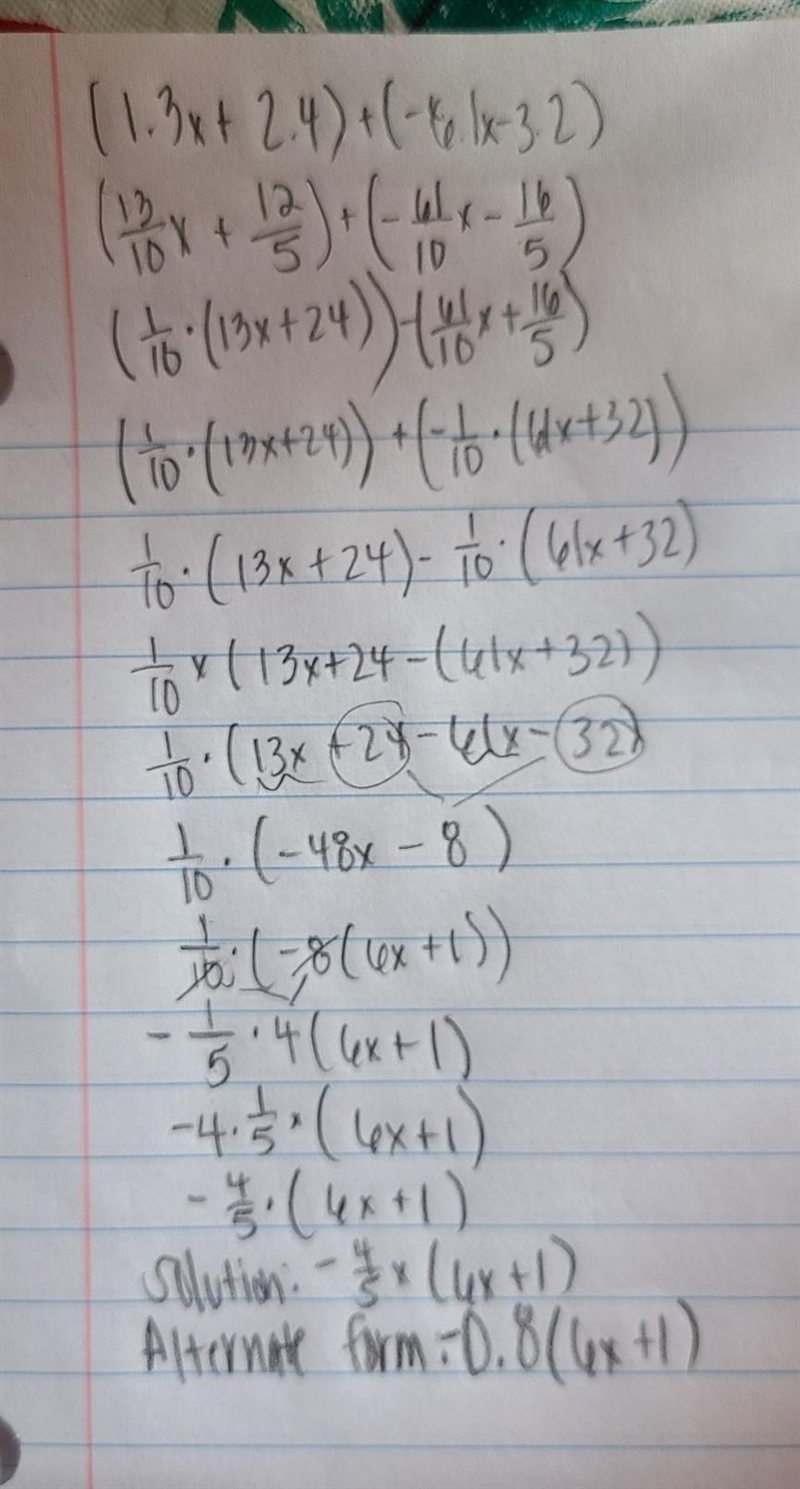 (1.3x + 2.4) + (-6.1x - 3.2)
(13/10 x + 12/5) + (-61/10 x - 16/5)
(1/10 · (13x + 24)) - (61/10 x + 16/5)
(1/10 · (13x + 24)) + (-1/10 · (61x + 32))
1/10 · (13x + 24) - 1/10 · (61x + 32)
1/10 × (13x + 24 - (61x + 32))
1/10 · (13x + 24 - 61x - 32)
1/10 · (-48x - 8)
1/10 · (-8(6x + 1))
-1/5 · 4(6x + 1)
-4 · 1/5 × (6x + 1)
-4/5 · (6x + 1)
Solution: -4/5 × (6x + 1)
Alternate form: -0.8(6x + 1)